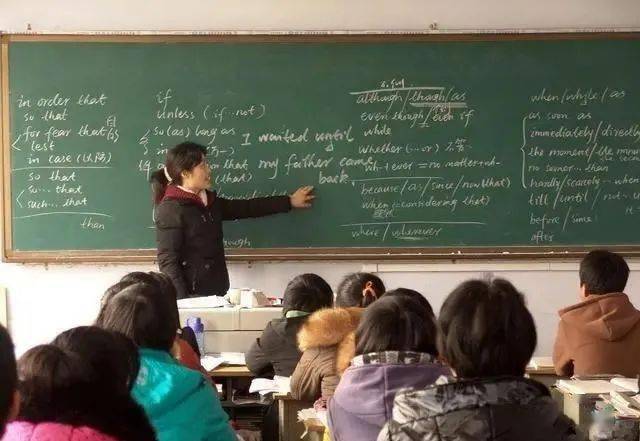 in order that
so that
for fear that
lest
in case (以防)
so that
so... that
such... that
than
if
unless (if...not)
so (as) long as
in
that
that)
I waited until
my father came
back.
although/though/as
even though/even if
while
whether (...or)
wh-+ever = no matter+wh-
because/as/since/now that)
when (=considering that)
where/wherever
when/while/as
as soon as
immediately/directly
the moment/the minute
no sooner... than
hardly/scarcely...when
till/until/not...
before/since
after